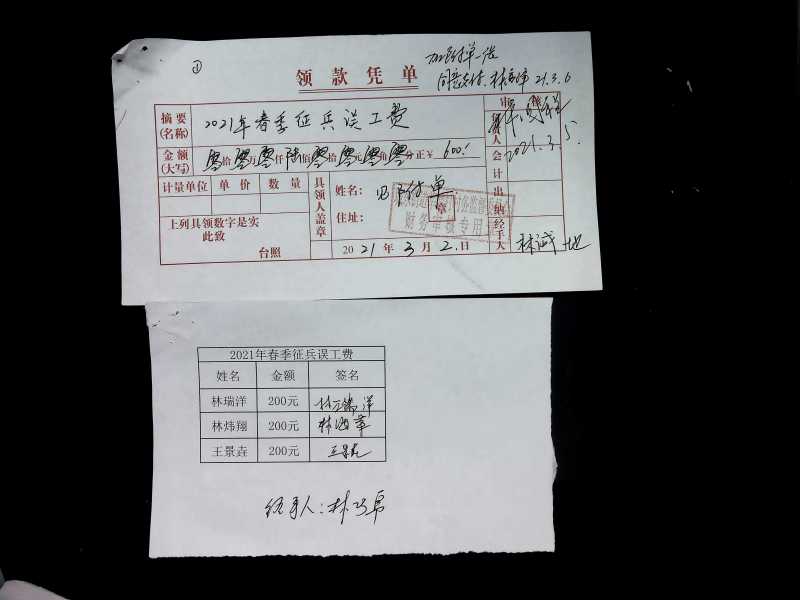 ①
领款凭单
同意支付. 21.3.6
摘要
(名称)
2021年春季征兵误工费
审核
负责人
2021.3.5.
金额
(大写)
零拾零万零仟陆佰零拾零元零角零分正￥600.-
会计
计量单位 单价 数量
具领人盖章
姓名: 附单
章
住址:
财务审核专用
出纳
上列具领数字是实
此致
台照
2021年3月2日
经手人
2021年春季征兵误工费
姓名 金额 签名
林瑞洋 200元 林瑞洋
林炜翔 200元
王景垚 200元 王景垚
经手人:林